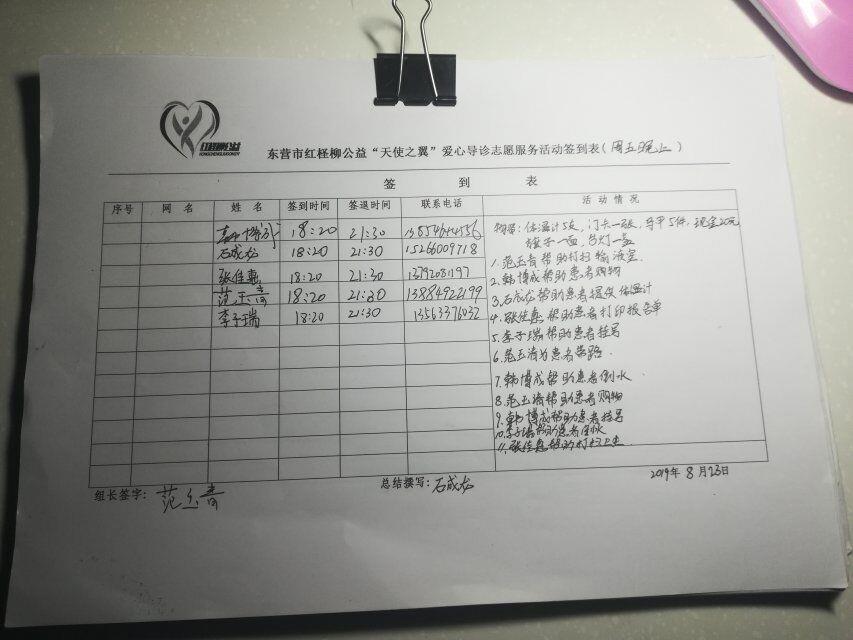 红柽柳公益
HONGCHENGLIUGONGYI
东营市红柽柳公益“天使之翼”爱心导诊志愿服务活动签到表（周五晚上）
签 到 表
序号 网 名 姓 名 签到时间 签退时间 联系电话 活 动 情 况
韩博成 18:20 21:30
石成龙 18:20 21:30 15266009718
张佳惠 18:20 21:30
范玉青 18:20 21:30 13884922199
李子瑞 18:20 21:30 13563376032
物品：体温计5支，门卡一张，马甲5件，现金20元
镜子一面，台灯一盏
1. 范玉青帮助打扫输液室
2. 韩博成帮助患者购物
3. 石成龙帮助患者提供体温计
4. 张佳惠帮助患者打印报告单
5. 李子瑞帮助患者挂号
6. 范玉清为患者带路
7. 韩博成帮助患者倒水
8. 范玉清帮助患者购物
9. 韩博成帮助患者挂号
10. 李子瑞帮助患者倒水
11. 张佳惠帮助打扫卫生
2019年8月23日
组长签字：范玉青 总结撰写：石成龙